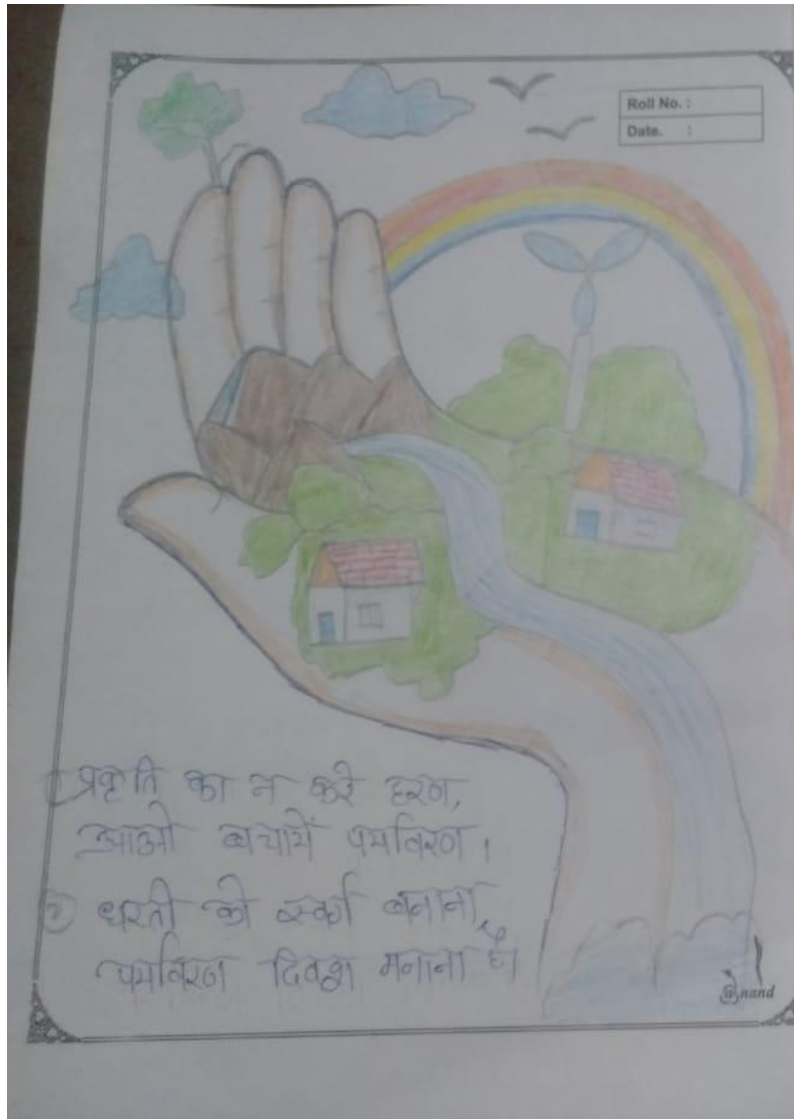 Roll No. :
Date. :
① प्रकृति का न करे हरण,
आओ बचायें पर्यावरण ।
② धरती को स्वर्ग बनाना है,
पर्यावरण दिवश मनाना है।
@nand